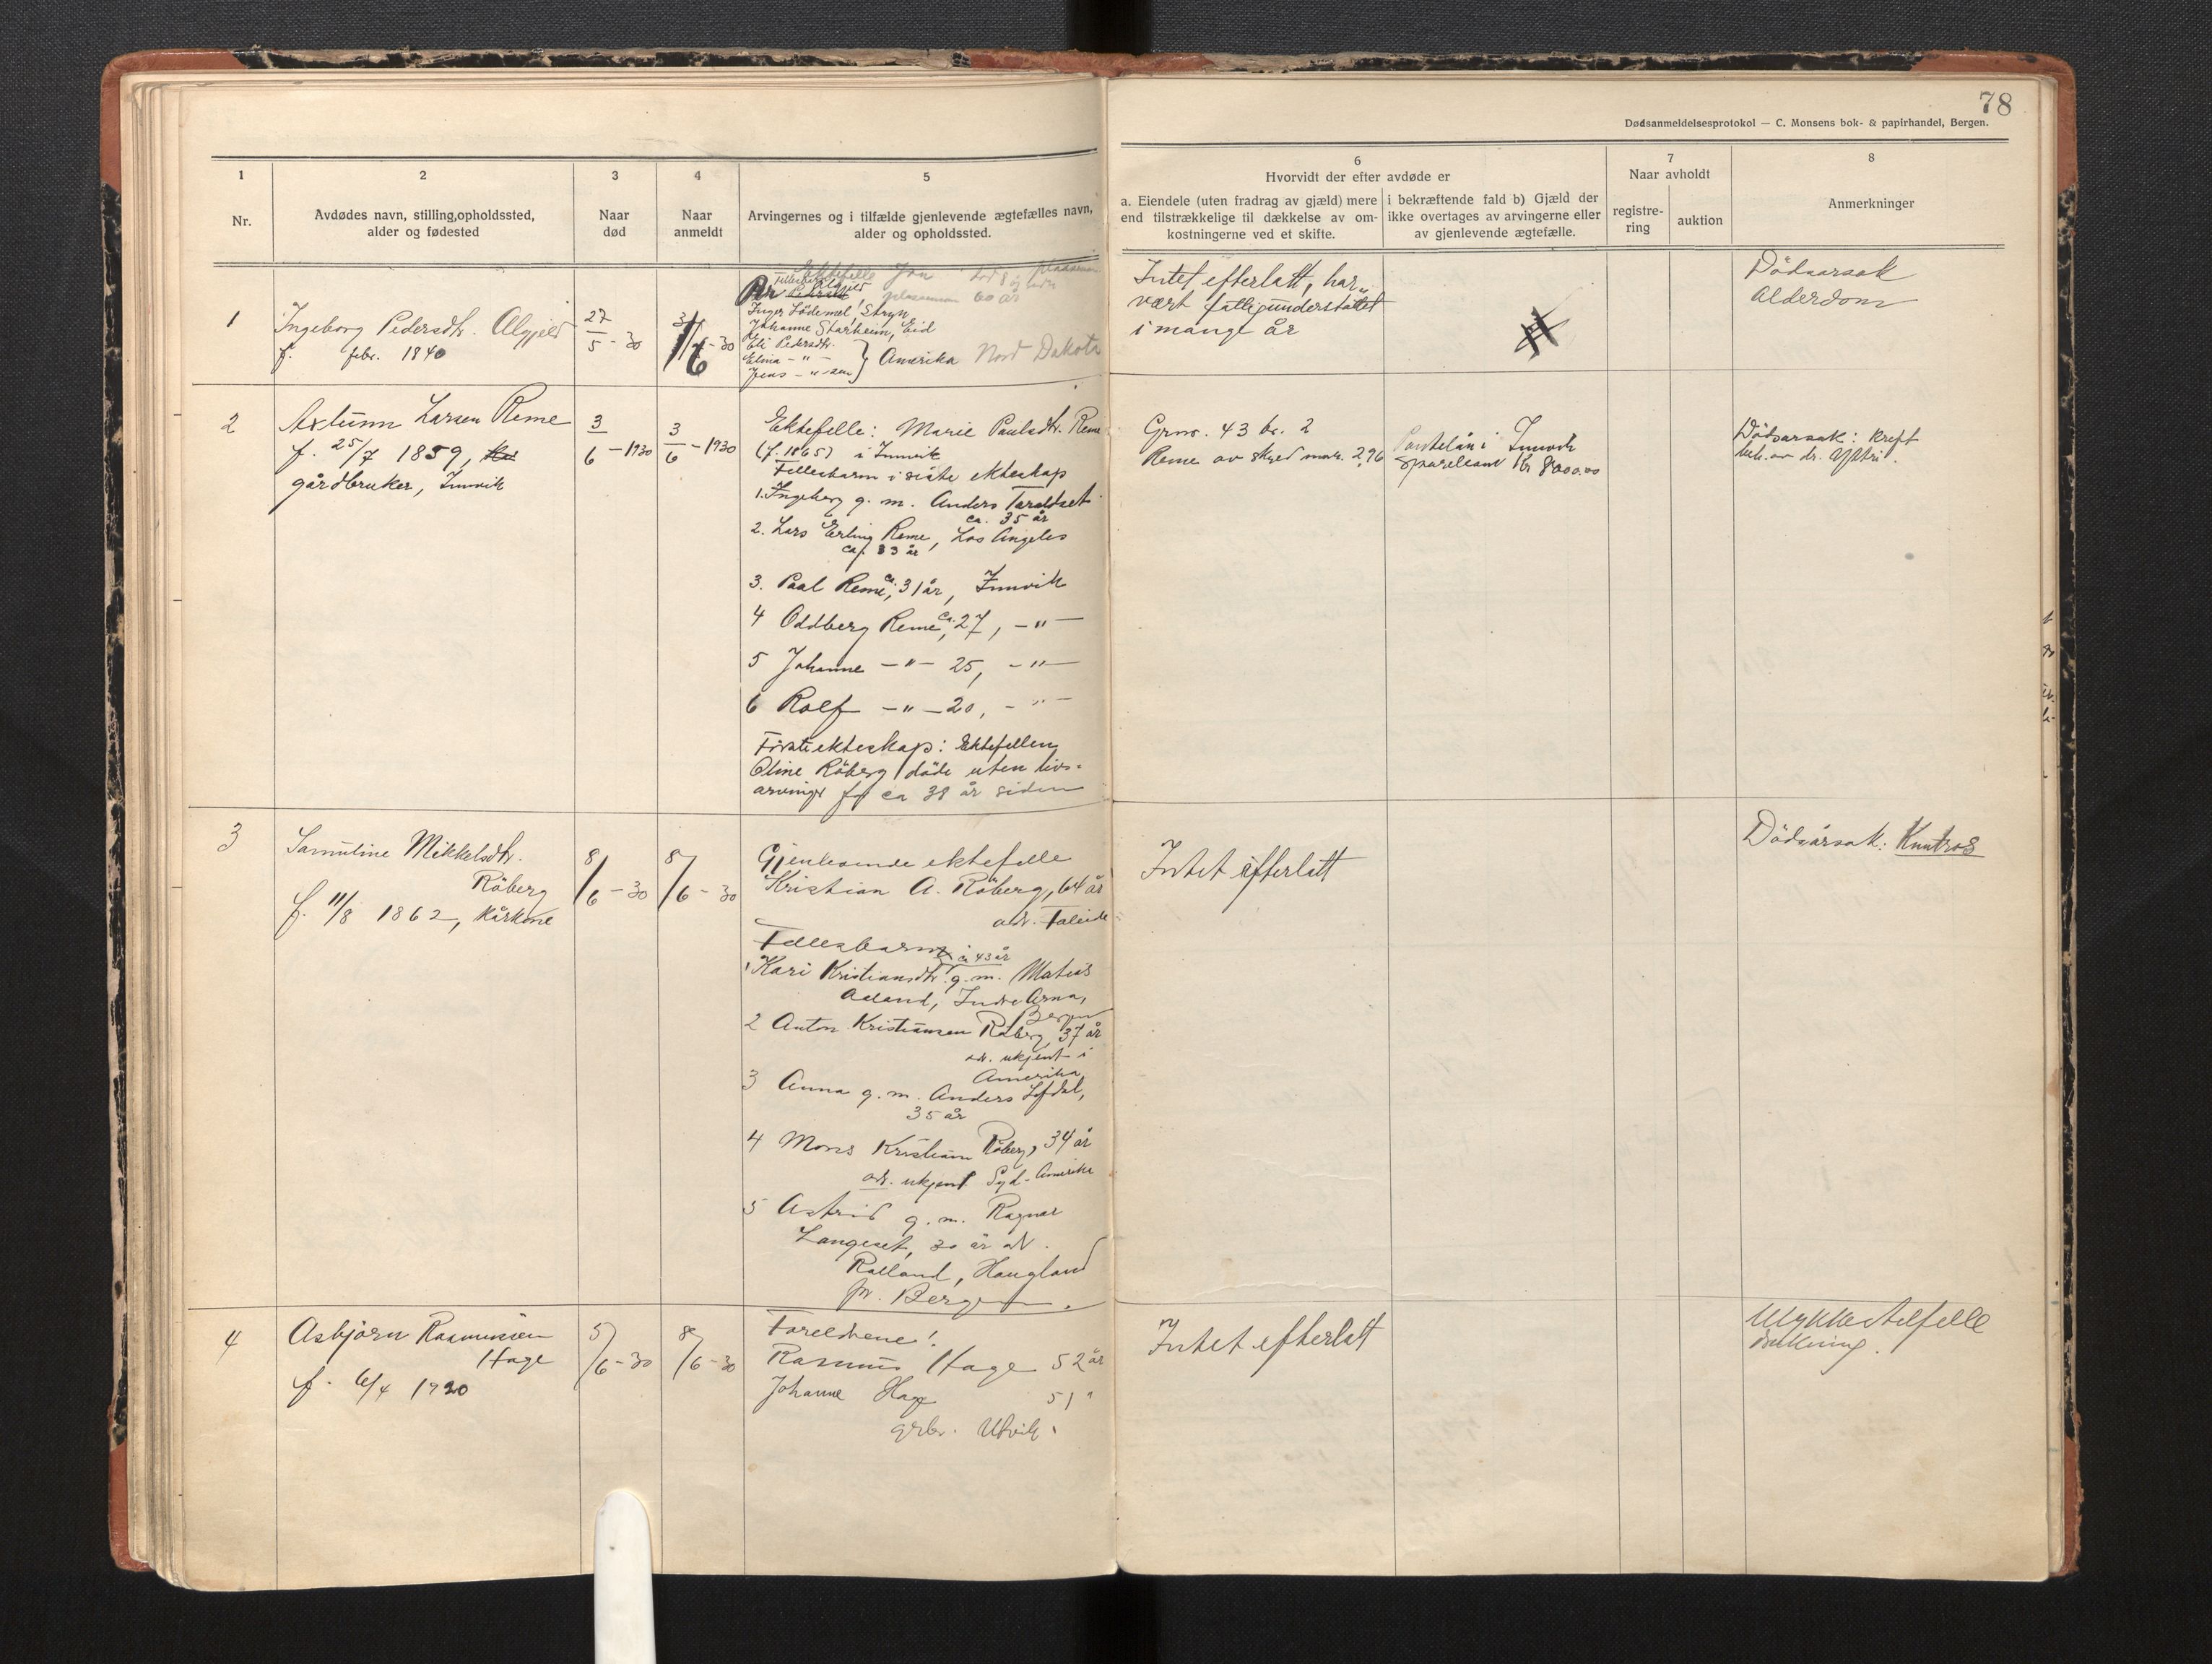 78
Dødsanmeldelsesprotokol — C. Monsens bok- & papirhandel, Bergen.
1
Nr.
2
Avdødes navn, stilling, opholdssted,
alder og fødested
3
Naar
død
4
Naar
anmeldt
5
Arvingernes og i tilfælde gjenlevende ægtefælles navn,
alder og opholdssted.
6
Hvorvidt der efter avdøde er
a. Eiendele (uten fradrag av gjæld) mere
end tilstrækkelige til dækkelse av om-
kostningerne ved et skifte.
i bekræftende fald b) Gjæld der
ikke overtages av arvingerne eller
av gjenlevende ægtefælle.
7
Naar avholdt
registre-
ring
auktion
8
Anmerkninger
1
Ingeborg Pedersdtr. Algjeld
f. febr. 1840
27/5 - 30
/6 - 30
Ektefelle
60 år
Inger Lödemel, Stryn
Johanne Starheim, Eid
Eli Pedersdtr.
Elina - " -
Jens - " sen } Amerika Nord Dakota
Intet efterlatt, har
vært fattigunderstøttet
i mange år
Dödsårsak
Alderdom
2
Larsen Reme
f. 25/7 1859,
gårdbruker, Innvik
3/6 - 1930
3/6 - 1930
Ektefelle: Marie Paulsdtr. Reme
(f. 1865) i Innvik
Fellesbarn i siste ekteskap
1. Ingeborg g. m. Anders Taraldset
ca. 35 år
2. Lars Erling Reme, Los Angeles
ca. 33 år
3. Paal Reme, ca. 31 år, Innvik
4 Oddberg Reme, ca. 27, - " -
5 Johanne - " - 25, - " -
6 Rolf - " - 20, - " -
Första ekteskap: Ektefellen
Oline Röberg döde uten livs-
arvinger for ca 38 år siden
Grnr. 43 br. 2
Reme av skyld mark 2,96
Pantelån i Innvik
Sparebank kr 8000.00
Dödsårsak: kreft
beh. av dr.
3
Samuline Mikkelsdtr.
Röberg
f. 11/8 1862, kårkone
8/6 - 30
8/6 - 30
Gjenlevende ektefelle
Kristian A. Röberg, 64 år
adr. Faleide
Fellesbarn
ca 43 år
1 Kari Kristiansdtr. g. m. Matias
Aaland, Indre Arna,
Bergen
2 Anton Kristiansen Röberg, 37 år
adr. ukjent i
Amerika
3 Anna g. m. Anders Lofdal,
35 år
4 Mons Kristian Röberg, 34 år
adr. ukjent Syd-Amerika
5 Astrid g. m. Ragnar
Langeset, 30 år adr.
Haugland
pr. Bergen.
Intet efterlatt
Dödsårsak: Knutros
4
Asbjörn Rasmussen
Hage
f. 6/4 1920
5/6 - 30
8/6 - 30
Foreldrene:
Rasmus Hage 52 år
Johanne Hage 51 "
grbr. Utvik.
Intet efterlatt
Ulykkestilfelle
drukning.